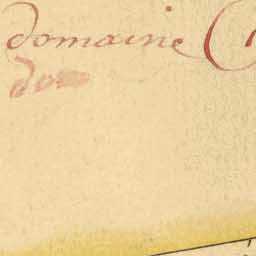 domaine
dom